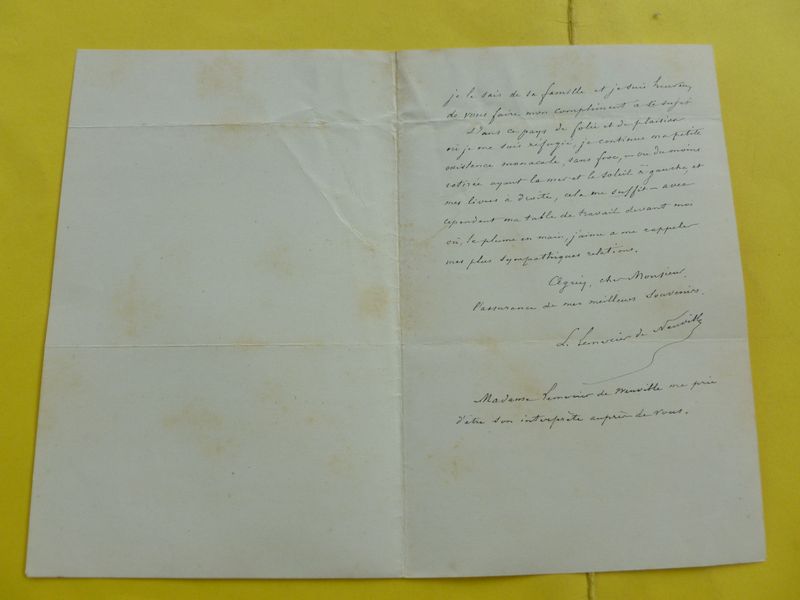 je le sais de sa famille et je suis heureux
de vous faire mon compliment à ce sujet
Dans ce pays de folie et de plaisirs
où je me suis refugié, je continue ma petite
existence monacale, sans froc, — ou du moins
retirée ayant la mer et le soleil à gauche, et
mes livres à droite, cela me suffit — avec
cependant ma table de travail devant moi
où, la plume en main, j'aime a me rappeler
mes plus sympathiques relations.
Agréez, cher Monsieur
l'assurance de mes meilleurs souvenirs.
L. Lemercier de Neuville
Madame Lemercier de Neuville me prie
d'être son interprète auprès de vous.